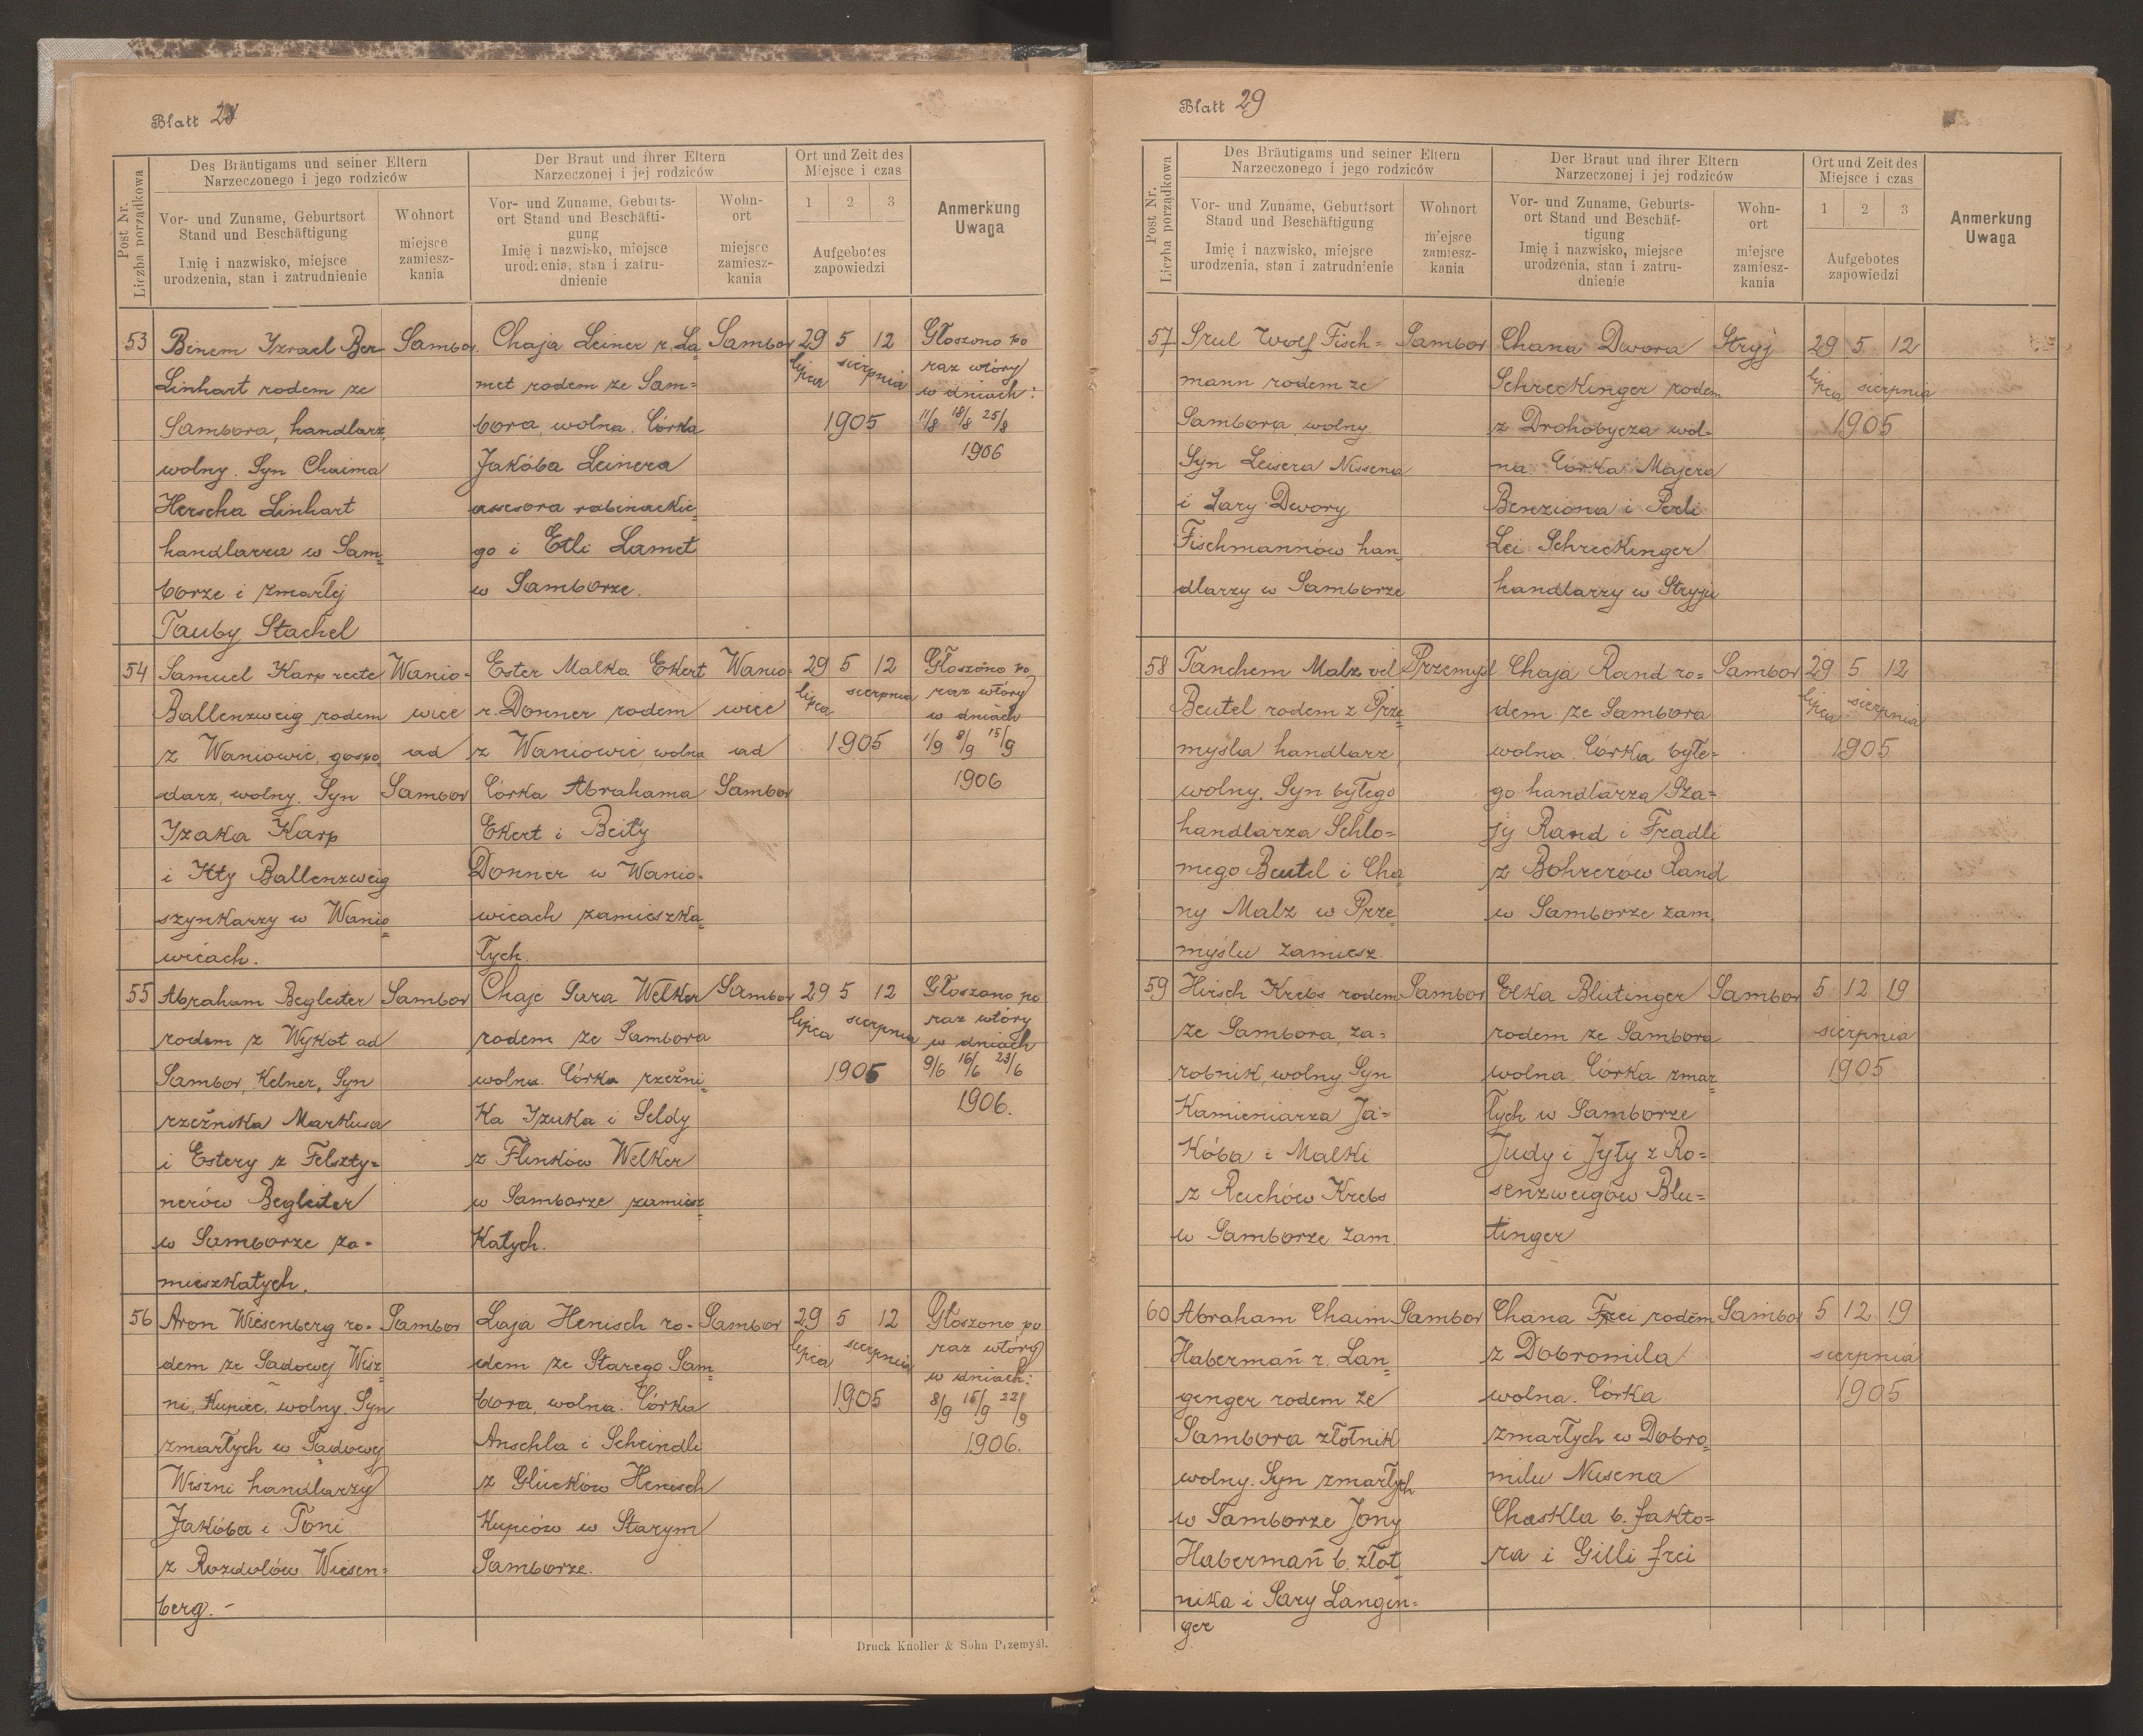 Blatt 28
Des Bräutigams und seiner Eltern
Narzeczonego i jego rodziców
Der Braut und ihrer Eltern
Narzeczonej i jej rodziców
Ort und Zeit des
Miejsce i czas
Anmerkung
Uwaga
Post Nr.
Liczba porządkowa
Vor- und Zuname, Geburtsort
Stand und Beschäftigung
Imię i nazwisko, miejsce
urodzenia, stan i zatrudnienie
Wohnort
miejsce
zamiesz-
kania
Vor- und Zuname, Geburts-
ort Stand und Beschäfti-
gung
Imię i nazwisko, miejsce
urodzenia, stan i zatru-
dnienie
Wohn-
ort
miejsce
zamiesz-
kania
1 2 3
Aufgebotes
zapowiedzi
53
Binem Izrael Ber
Linhart rodem ze
Sambora, handlarz,
wolny. Syn Chaima
Herscha Linhart
handlarza w Sam=
borze i zmarłej
Tauby Stachel
Sambor.
Chaja Leiner r. La
met rodem ze Sam=
bora, wolna. Córka
Jakóba Leinera
assesora rabinackie=
go i Etli Lamet
w Samborze.
Sambor
29 5 12
lipca sierpnia
1905
Głoszono po
raz wtóry
w dniach:
11/8 18/8 25/8
1906
54
Samuel Karp recte
Ballenzweig rodem
z Waniowic, gospo
darz, wolny. Syn
Izaka Karp
i Itty Ballenzweig
szynkarzy w Wanio=
wicach.
Wanio=
wice
ad
Sambor
Ester Malka Ekert
r. Donner rodem
z Waniowic wolna
Córka Abrahama
Ekert i Beity
Donner w Wanio=
wicach zamieszka=
łych.
Wanio=
wice
ad
Sambor
29 5 12
lipca sierpnia
1905
Głoszono po
raz wtóry
w dniach
1/9 8/9 15/9
1906
55
Abraham Begleiter
rodem z Wykot ad
Sambor, Kelner, Syn
rzeźnika Markusa
i Estery z Felszty=
nerów Begleiter
w Samborze za=
mieszkałych.
Sambor
Chaje Sara Welker
rodem ze Sambora
wolna. Córka rzeźni=
ka Izaka i Seldy
z Flinków Welker
w Samborze zamiesz=
kałych.
Sambor
29 5 12
lipca sierpnia
1905
Głoszono po
raz wtóry
w dniach
9/6 16/6 23/6
1906.
56
Aron Wiesenberg ro=
dem ze Sadowej Wisz=
ni, Kupiec, wolny. Syn
zmarłych w Sadowej
Wiszni handlarzy
Jakóba i Toni
z Rozdolów Wiesen=
berg. -
Sambor
Laja Henisch ro=
dem ze Starego Sam=
bora, wolna. Córka
Anschla i Scheindli
z Glücków Henisch
Kupców w Starym
Samborze.
Sambor
29 5 12
lipca sierpnia
1905
Głoszono po
raz wtóry
w dniach:
8/9 15/9 22/9
1906.
Druck Knoller & Sohn Przemyśl.
Blatt 29
Des Bräutigams und seiner Eltern
Narzeczonego i jego rodziców
Der Braut und ihrer Eltern
Narzeczonej i jej rodziców
Ort und Zeit des
Miejsce i czas
Anmerkung
Uwaga
Post Nr.
Liczba porządkowa
Vor- und Zuname, Geburtsort
Stand und Beschäftigung
Imię i nazwisko, miejsce
urodzenia, stan i zatrudnienie
Wohnort
miejsce
zamiesz-
kania
Vor- und Zuname, Geburts-
ort Stand und Beschäf-
tigung
Imię i nazwisko, miejsce
urodzenia, stan i zatru-
dnienie
Wohn-
ort
miejsce
zamiesz-
kania
1 2 3
Aufgebotes
zapowiedzi
57
Srul Wolf Fisch=
mann rodem ze
Sambora, wolny.
Syn Leisera Nissena
i Sary Dwory
Fischmannów han
dlarzy w Samborze
Sambor
Chana Dwora
Schreckinger rodem
z Drohobycza wol=
na. Córka Majera
Benziona i Perli
Lei Schreckinger
handlarzy w Stryju
Stryj
29 5 12
lipca sierpnia
1905
58
Tanchem Malz vel
Beutel rodem z Prze=
myśla handlarz,
wolny. Syn byłego
handlarza Schlo=
mego Beutel i Cha=
ny Malz w Prze=
myślu zamiesz.
Przemyśl
Chaja Rand ro=
dem ze Sambora
wolna. Córka byłe=
go handlarza Sza=
ji Rand i Fradli
z Bohrerów Rand
w Samborze zam.
Sambor
29 5 12
lipca sierpnia
1905
59
Hirsch Krebs rodem
ze Sambora, za=
robnik, wolny Syn
Kamieniarza Ja=
kóba i Malki
z Rauchów Krebs
w Samborze zam.
Sambor
Elka Blutinger
rodem ze Sambora
wolna. Córka zmar=
łych w Samborze
Judy i Jyty z Ro=
senzweigów Blu=
tinger
Sambor
5 12 19
sierpnia
1905
60
Abraham Chaim
Habermañ r. Lan=
genger rodem ze
Sambora złotnik
wolny. Syn zmarłych
w Samborze Jony
Habermañ b. złot=
nika i Sary Langen=
ger
Sambor
Chana Frei rodem
z Dobromila
wolna. Córka
zmarłych w Dobro=
milu Nusena
Chaskla b. fakto=
ra i Gilli frei
Sambor
5 12 19
sierpnia
1905